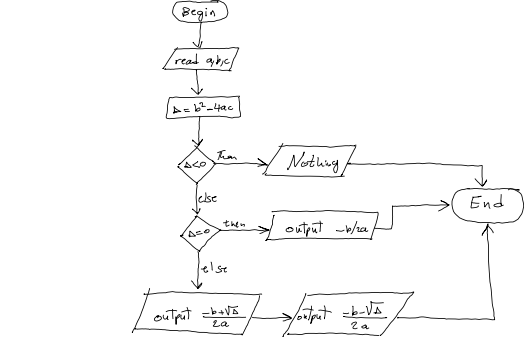 Begin
read a,b,c
Δ = b² - 4ac
Δ<0
Then
Nothing
else
End
Δ=0
then
output -b/2a
else
output -b+√Δ / 2a
output -b-√Δ / 2a